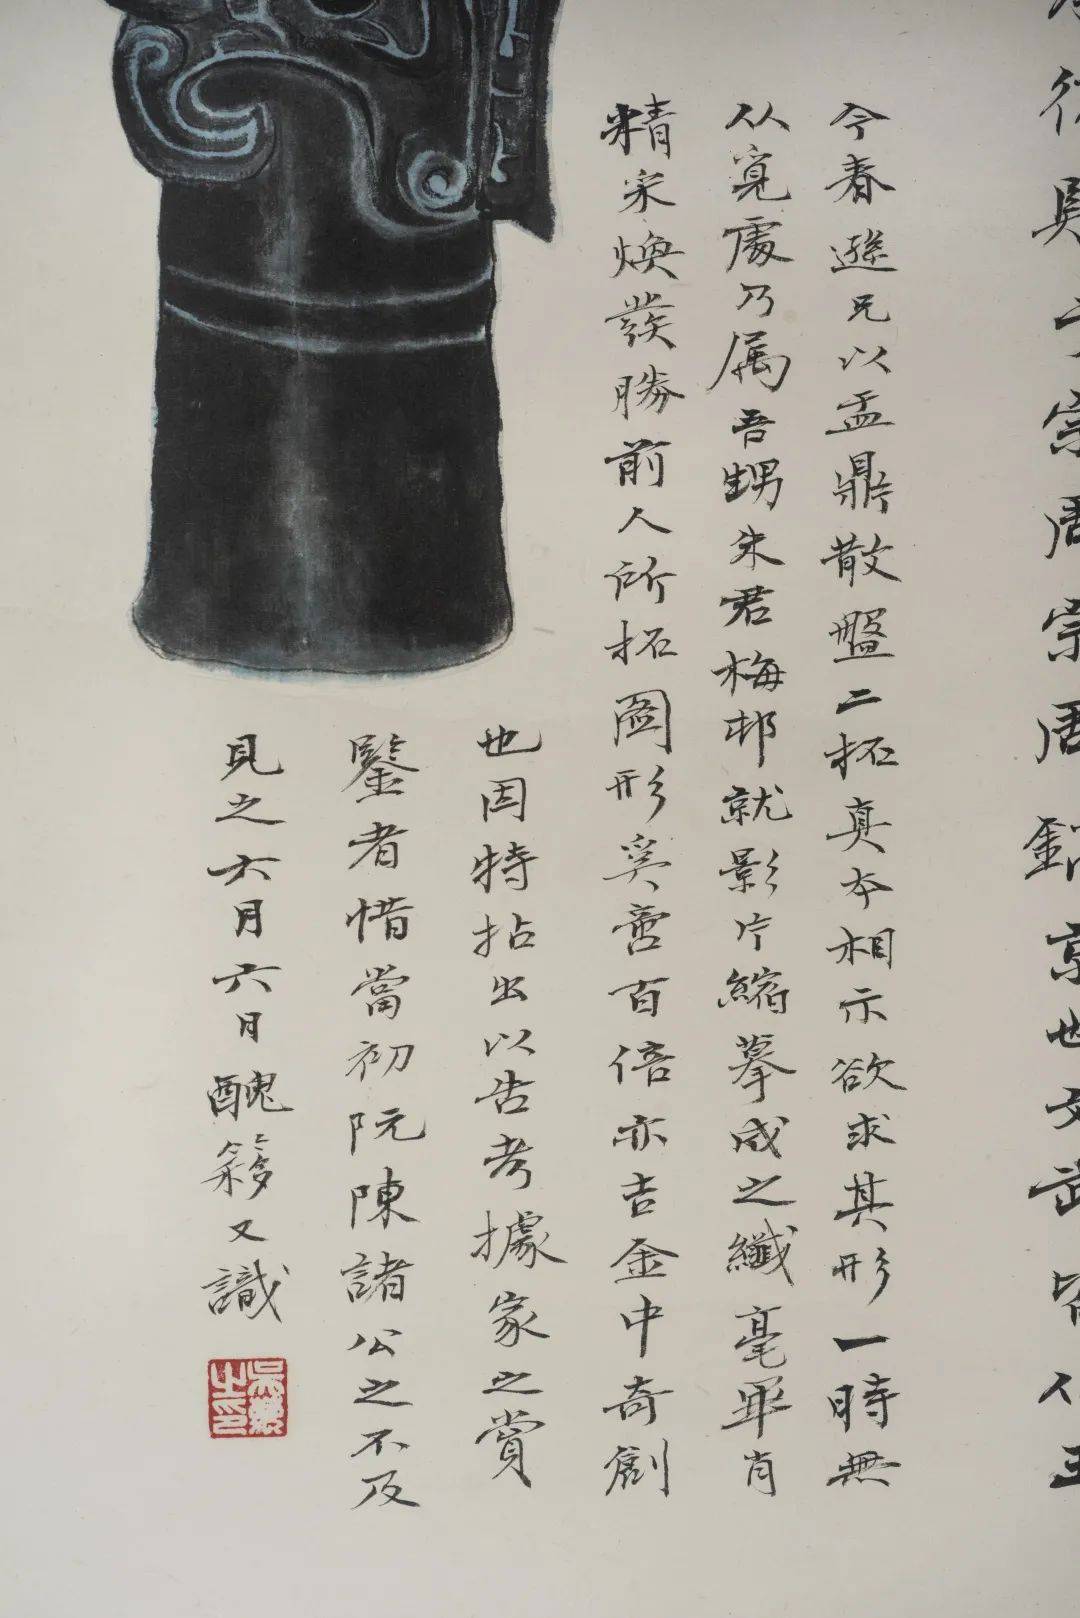 于宗周宗周鎬京也文武皆
今春遜兄以盂鼎散盤二拓真本相示欲求其形一時無
从覓處乃属吾甥朱君梅邨就影片縮摹成之纖毫畢肖
精采煥發勝前人所拓圖形奚啻百倍亦吉金中奇創
也因特拈出以告考據家之賞
鑒者惜當初阮陳諸公之不及
見之六月六日醜簃又識
吳萬之印